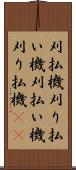 刈払機刈り払
い機刈払い機
刈り払機